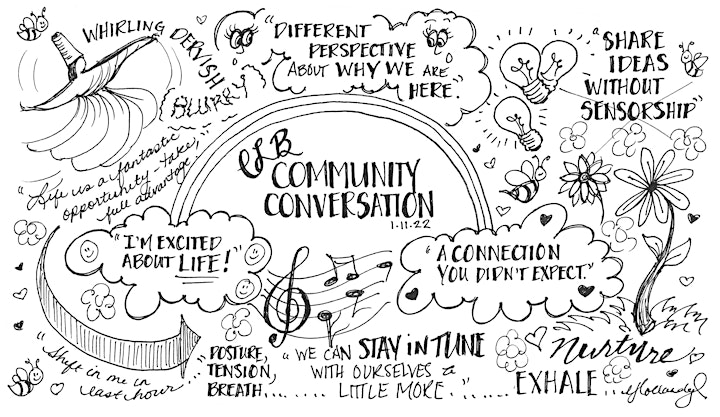 WHIRLING
DERVISH
BLURRY
"DIFFERENT
PERSPECTIVE
ABOUT WHY WE ARE
HERE."
"SHARE
IDEAS
WITHOUT
SENSORSHIP"
"Life is a fantastic
opportunity - take
full advantage."
COMMUNITY
CONVERSATION
1-11-22
"I'M EXCITED
ABOUT LIFE!"
"A CONNECTION
YOU DIDN'T EXPECT."
"Shift in me in
last hour...
POSTURE,
TENSION,
BREATH....
"WE CAN STAY IN TUNE
WITH OURSELVES a
LITTLE MORE.
Nurture
EXHALE...